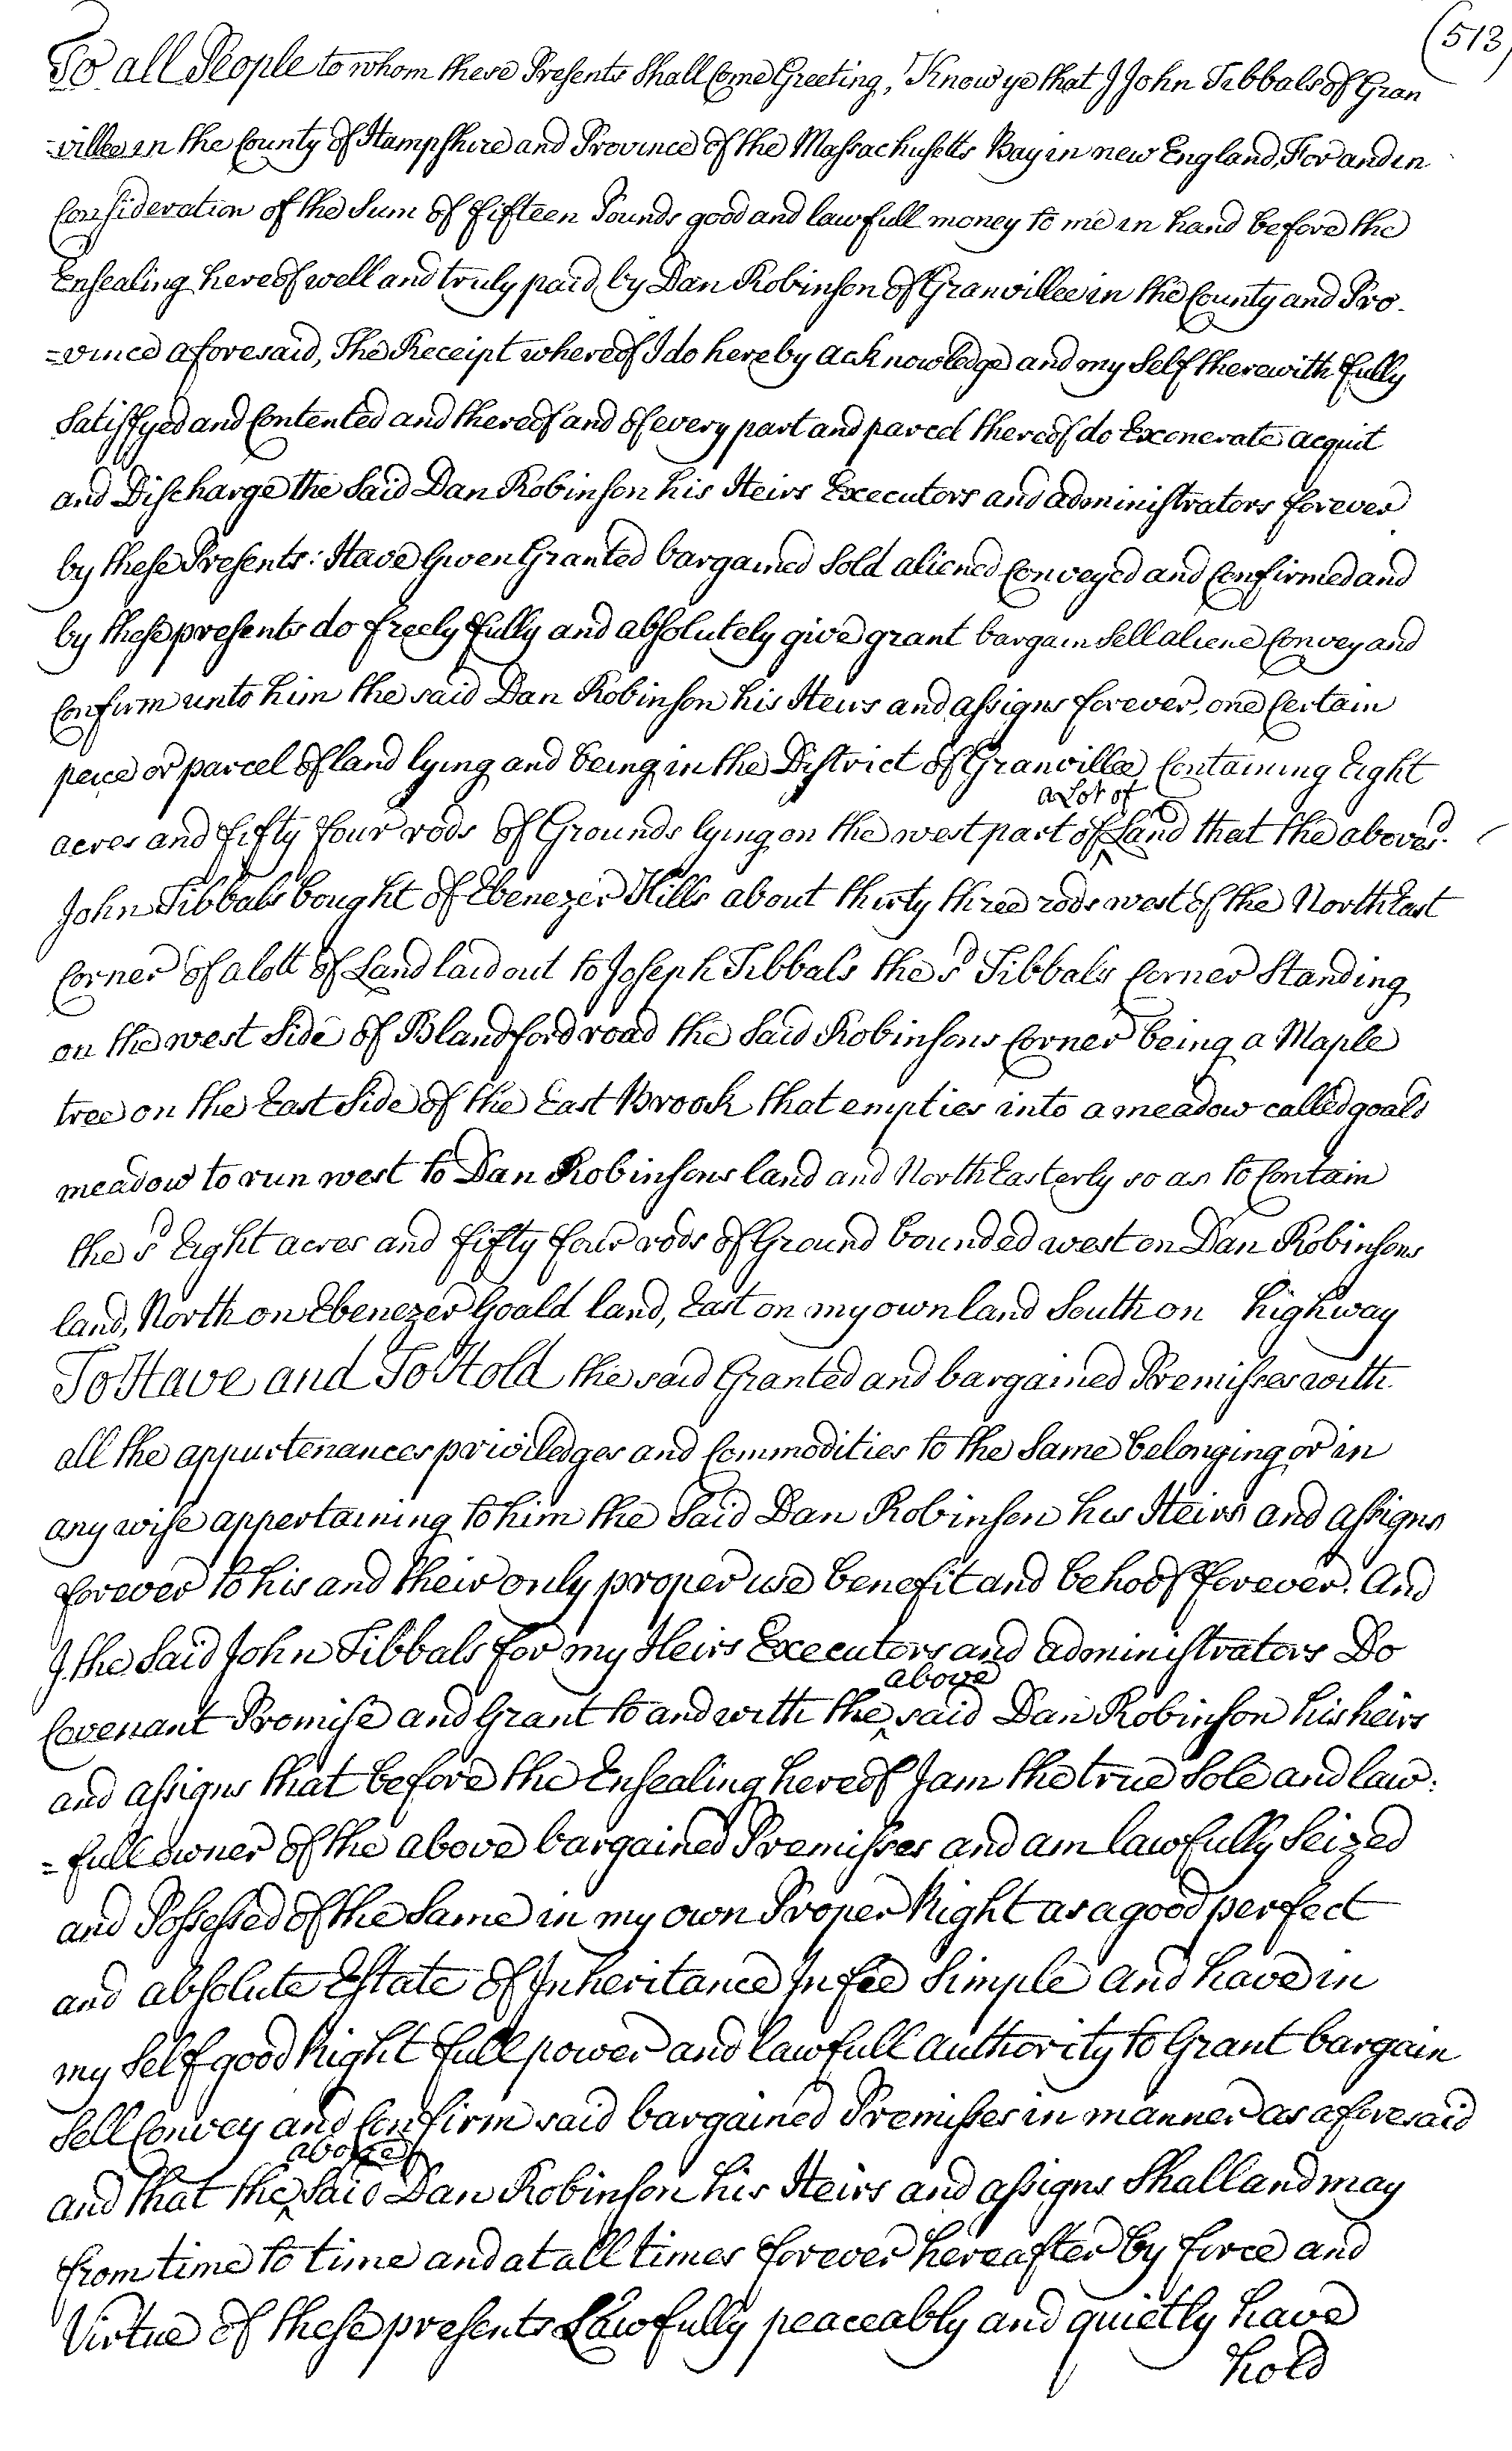 (513)
To all People to whom these Presents Shall Come Greeting, Know ye that I John Tibbals of Gran
=ville in the County of Hampshire and Province of the Massachusetts Bay in new England, For and in
Consideration of the Sum of fifteen Pounds good and lawfull money to me in hand before the
Ensealing hereof well and truly paid by Dan Robinson of Granville in the County and Pro-
=vince aforesaid, The Receipt whereof I do hereby acknowledge and my Self therewith fully
Satisfyed and Contented and thereof and of every part and parcel thereof do Exonerate acquit
and Discharge the Said Dan Robinson his Heirs Executors and administrators forever
by these Presents: Have Given Granted bargained Sold aliened Conveyed and Confirmed and
by these presents do freely fully and absolutely give grant bargain Sell aliene Convey and
Confirm unto him the said Dan Robinson his Heirs and assigns forever, one Certain
peice or parcel of land lying and being in the District of Granville, Containing Eight
a Lot of
acres and fifty four rods of Grounds lying on the west part of ^ Land that the above sd.
John Tibbals bought of Ebenezer Hills about thirty three rods west of the North East
Corner of a lott of Land laid out to Joseph Tibbals the sd Tibbals Corner Standing
on the west Side of Blandford road the Said Robinsons Corner being a Maple
tree on the East Side of the East Brook that empties into a meadow called goals
meadow to run west to Dan Robinsons land and North Easterly so as to Contain
the sd Eight acres and fifty four rods of Ground bounded west on Dan Robinsons
land, North on Ebenezer Goald land, East on my own land South on highway
To Have and To Hold the said Granted and bargained Premisses with
all the appurtenances priviledges and Commodities to the Same belonging or in
any wise appertaining to him the Said Dan Robinson his Heirs and assigns
forever to his and their only proper use benefit and behoof forever. And
I the Said John Tibbals for my Heirs Executors and administrators Do
above
Covenant Promise and Grant to and with the ^ said Dan Robinson his heirs
and assigns that before the Ensealing hereof I am the true Sole and law:
=full owner of the above bargained Premisses and am lawfully Seized
and Possessed of the Same in my own Proper Right as a good perfect
and absolute Estate of Inheritance In fee Simple and have in
my Self good Right full power and lawfull authority to Grant bargain
Sell Convey and Confirm said bargained Premisses in manner as aforesaid
above
and that the ^ Said Dan Robinson his Heirs and assigns Shall and may
from time to time and at all times forever hereafter by force and
Virtue of these presents Lawfully peaceably and quietly have
hold